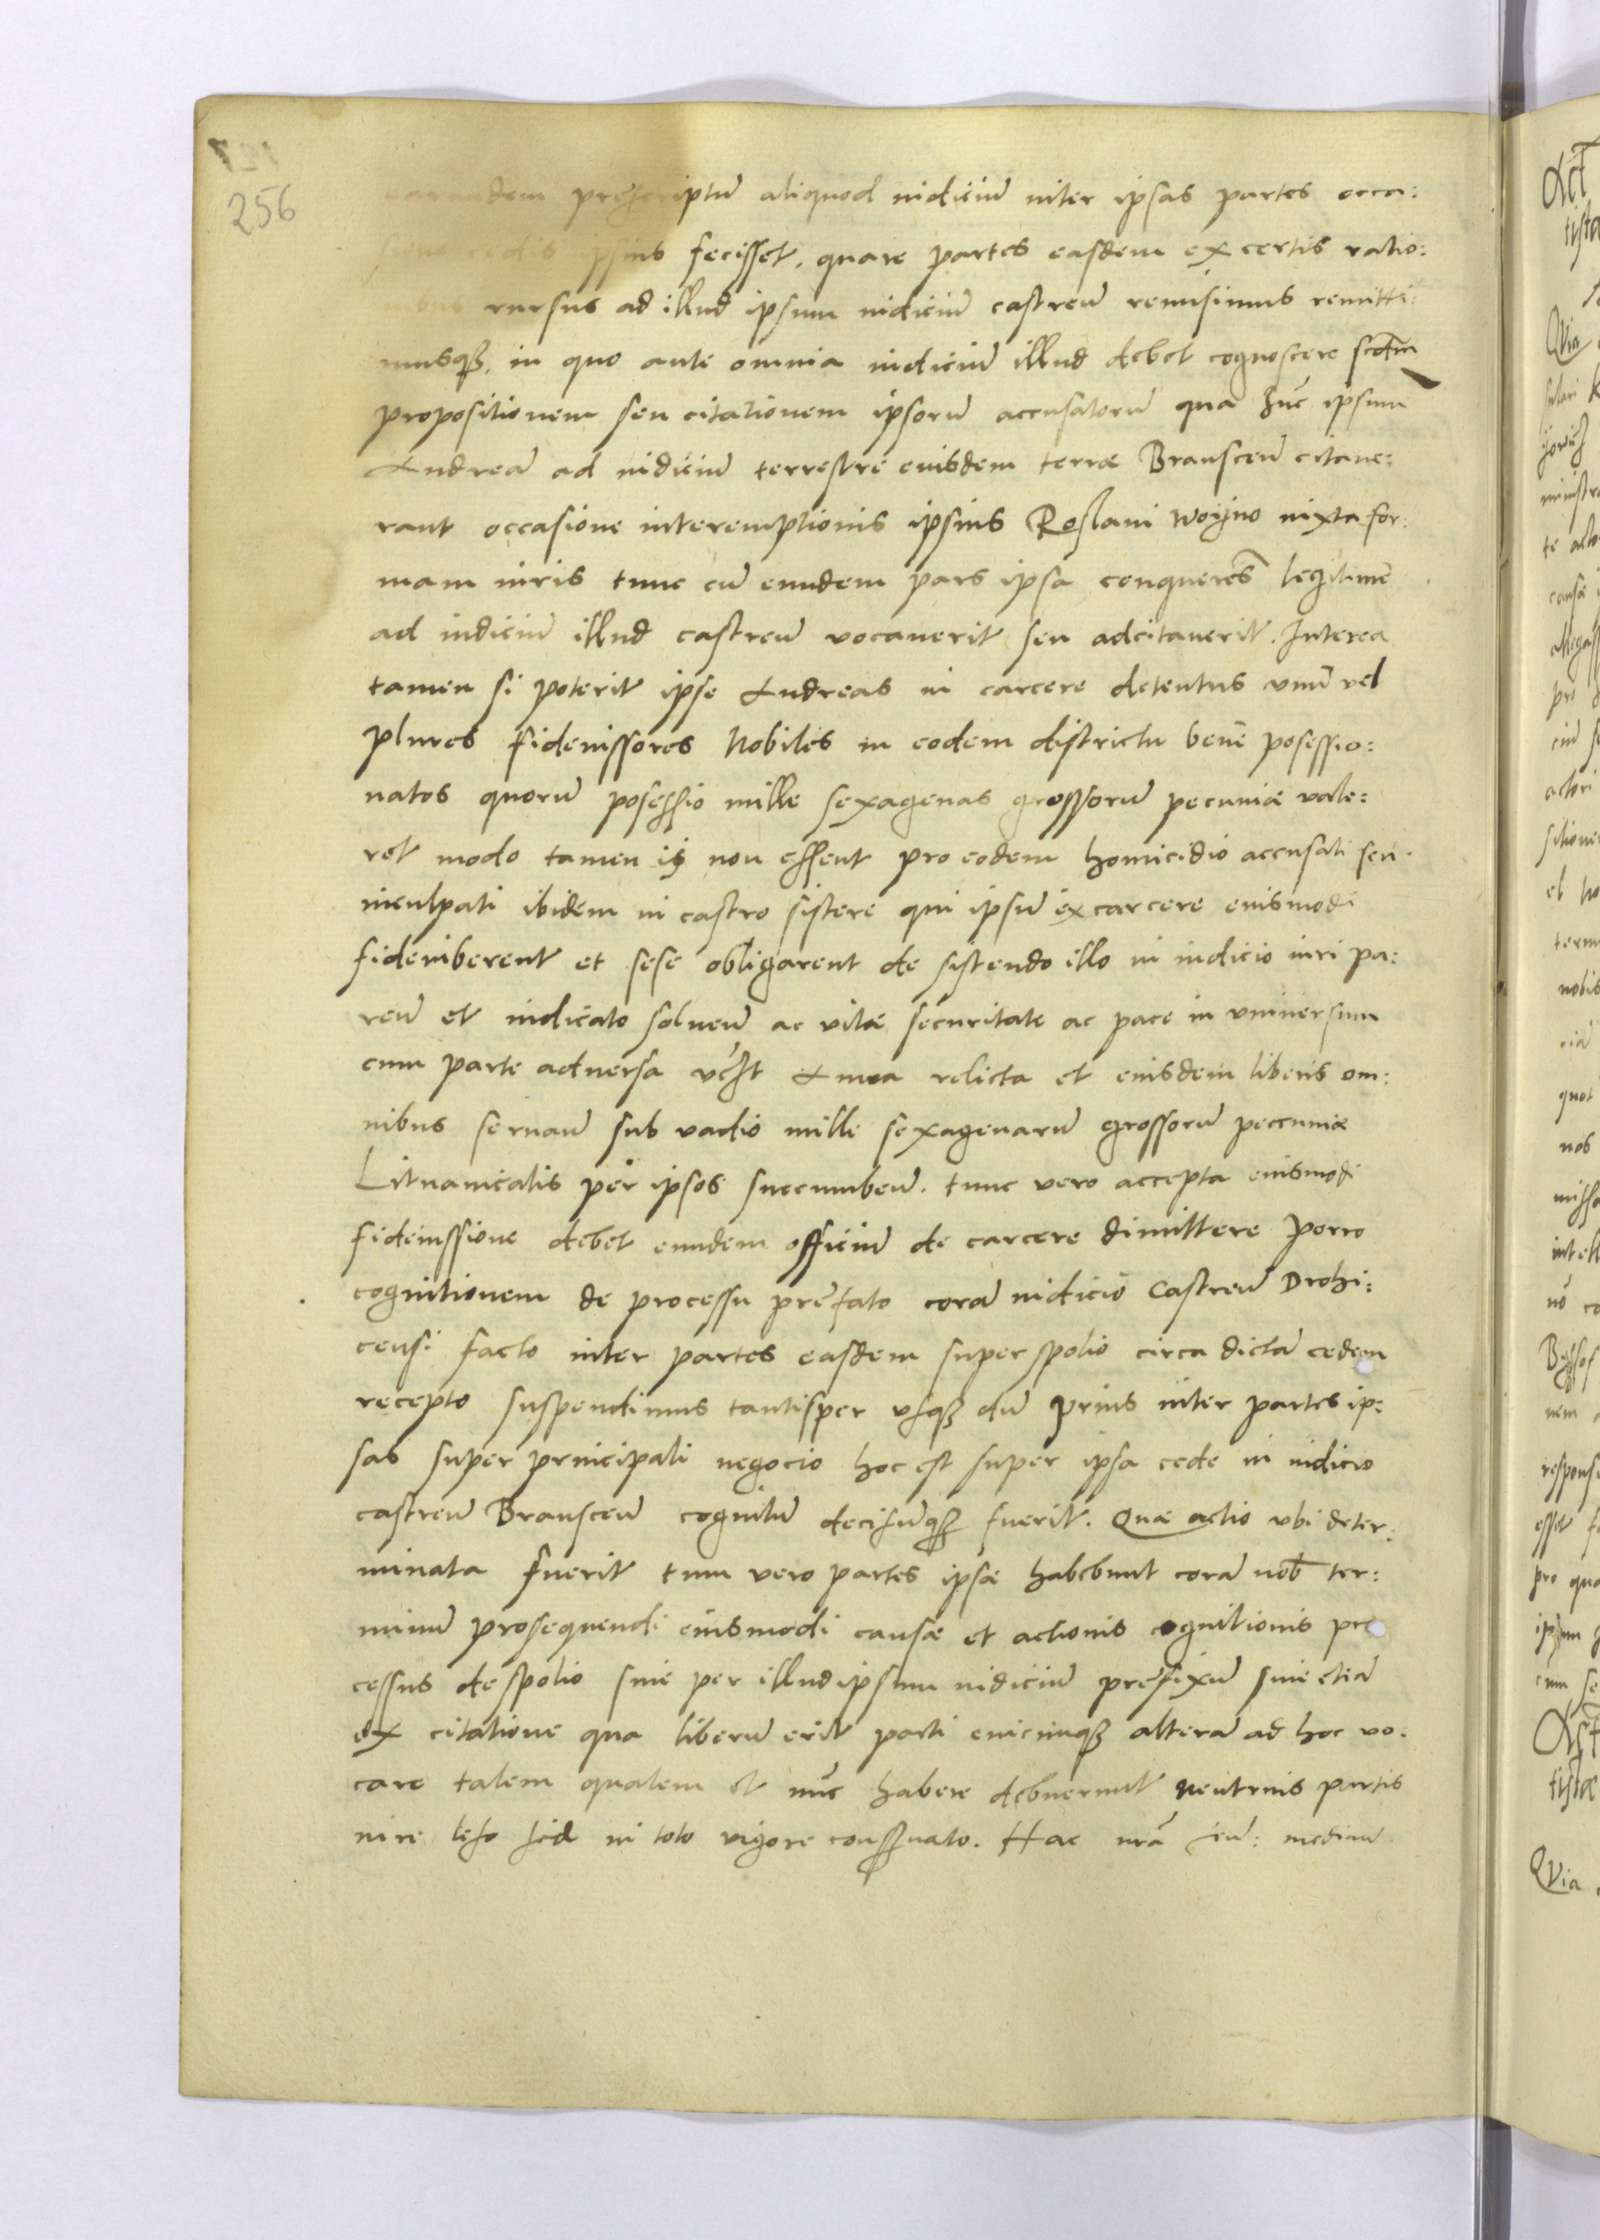 256
prescriptū aliquod iudiciū inter ipsas partes occa:
cedis ipsius fecisset, quare partes easdem ex certis ratio:
nibus rursus ad illud ipsum iudiciū castreñ remisimus remitti:
musqȝ, in quo ante omnia iudiciū illud debet cognoscere scdm
propositionem seu citationem ipsorū accusatorū qua hūc ipsum
Andreā ad iudiciū terrestre eiusdem terræ Branscen̄ citaue:
rant occasione interemptionis ipsius Roslani Woyno iuxta for:
mam iuris tunc cū eundem pars ipsa conquerēs legitime
ad iudiciū illud castren̄ vocauerit seu adcitauerit. Interea
tamen si poterit ipse Andreas in carcere detentus vnū vel
plures fideiussores Nobiles in eodem districtu bene posessio:
natos quorū posessio mille sexagenas grossorū pecuniæ vale:
ret modo tamen ij non essent pro eodem homicidio accusati seu
inculpati ibidem in castro sistere qui ipsū ex carcere eiusmodi
fideiuberent et sese obligarent de sistendo illo in iudicio iuri pa:
ren̄ et iudicato soluen̄ ac vitæ securitate ac pace in vniuersum
cum parte aduersa relicta et eiusdem liberis om:
nibus seruan̄ sub vadio mille sexagenarū grossorū peccuniæ
Lituanicalis per ipsos succumben̄. tunc vero accepta eiusmodi
fideiussione debet eundem officiū de carcere dimittere porro
cognitionem de processu prefato corā iudicio Castren̄ Drohi:
censi facto inter partes easdem super spolio circa dictā cedem
recepto suspendimus tantisper vsqȝ dū prius inter partes ip:
sas super principali negocio hoc est super ipsa cede in iudicio
castren̄ Branscen̄ cognitū decisūqȝ fuerit. Quæ actio vbi deter:
minata fuerit tum vero partes ipsæ habebunt corā nob̄ ter:
minū prosequendi eiusmodi causæ et actionis cognitionis pro
cessus de spolio siue per illud ipsum iudiciū prefixū siue etiā
ex citatione qua liberū erit parti cuicunqȝ alterā ad hoc vo:
care talem qualem et nūc habere debuerunt neutrius partis
iure leso sed in toto vigore conseruato. Hac nrā mediañ